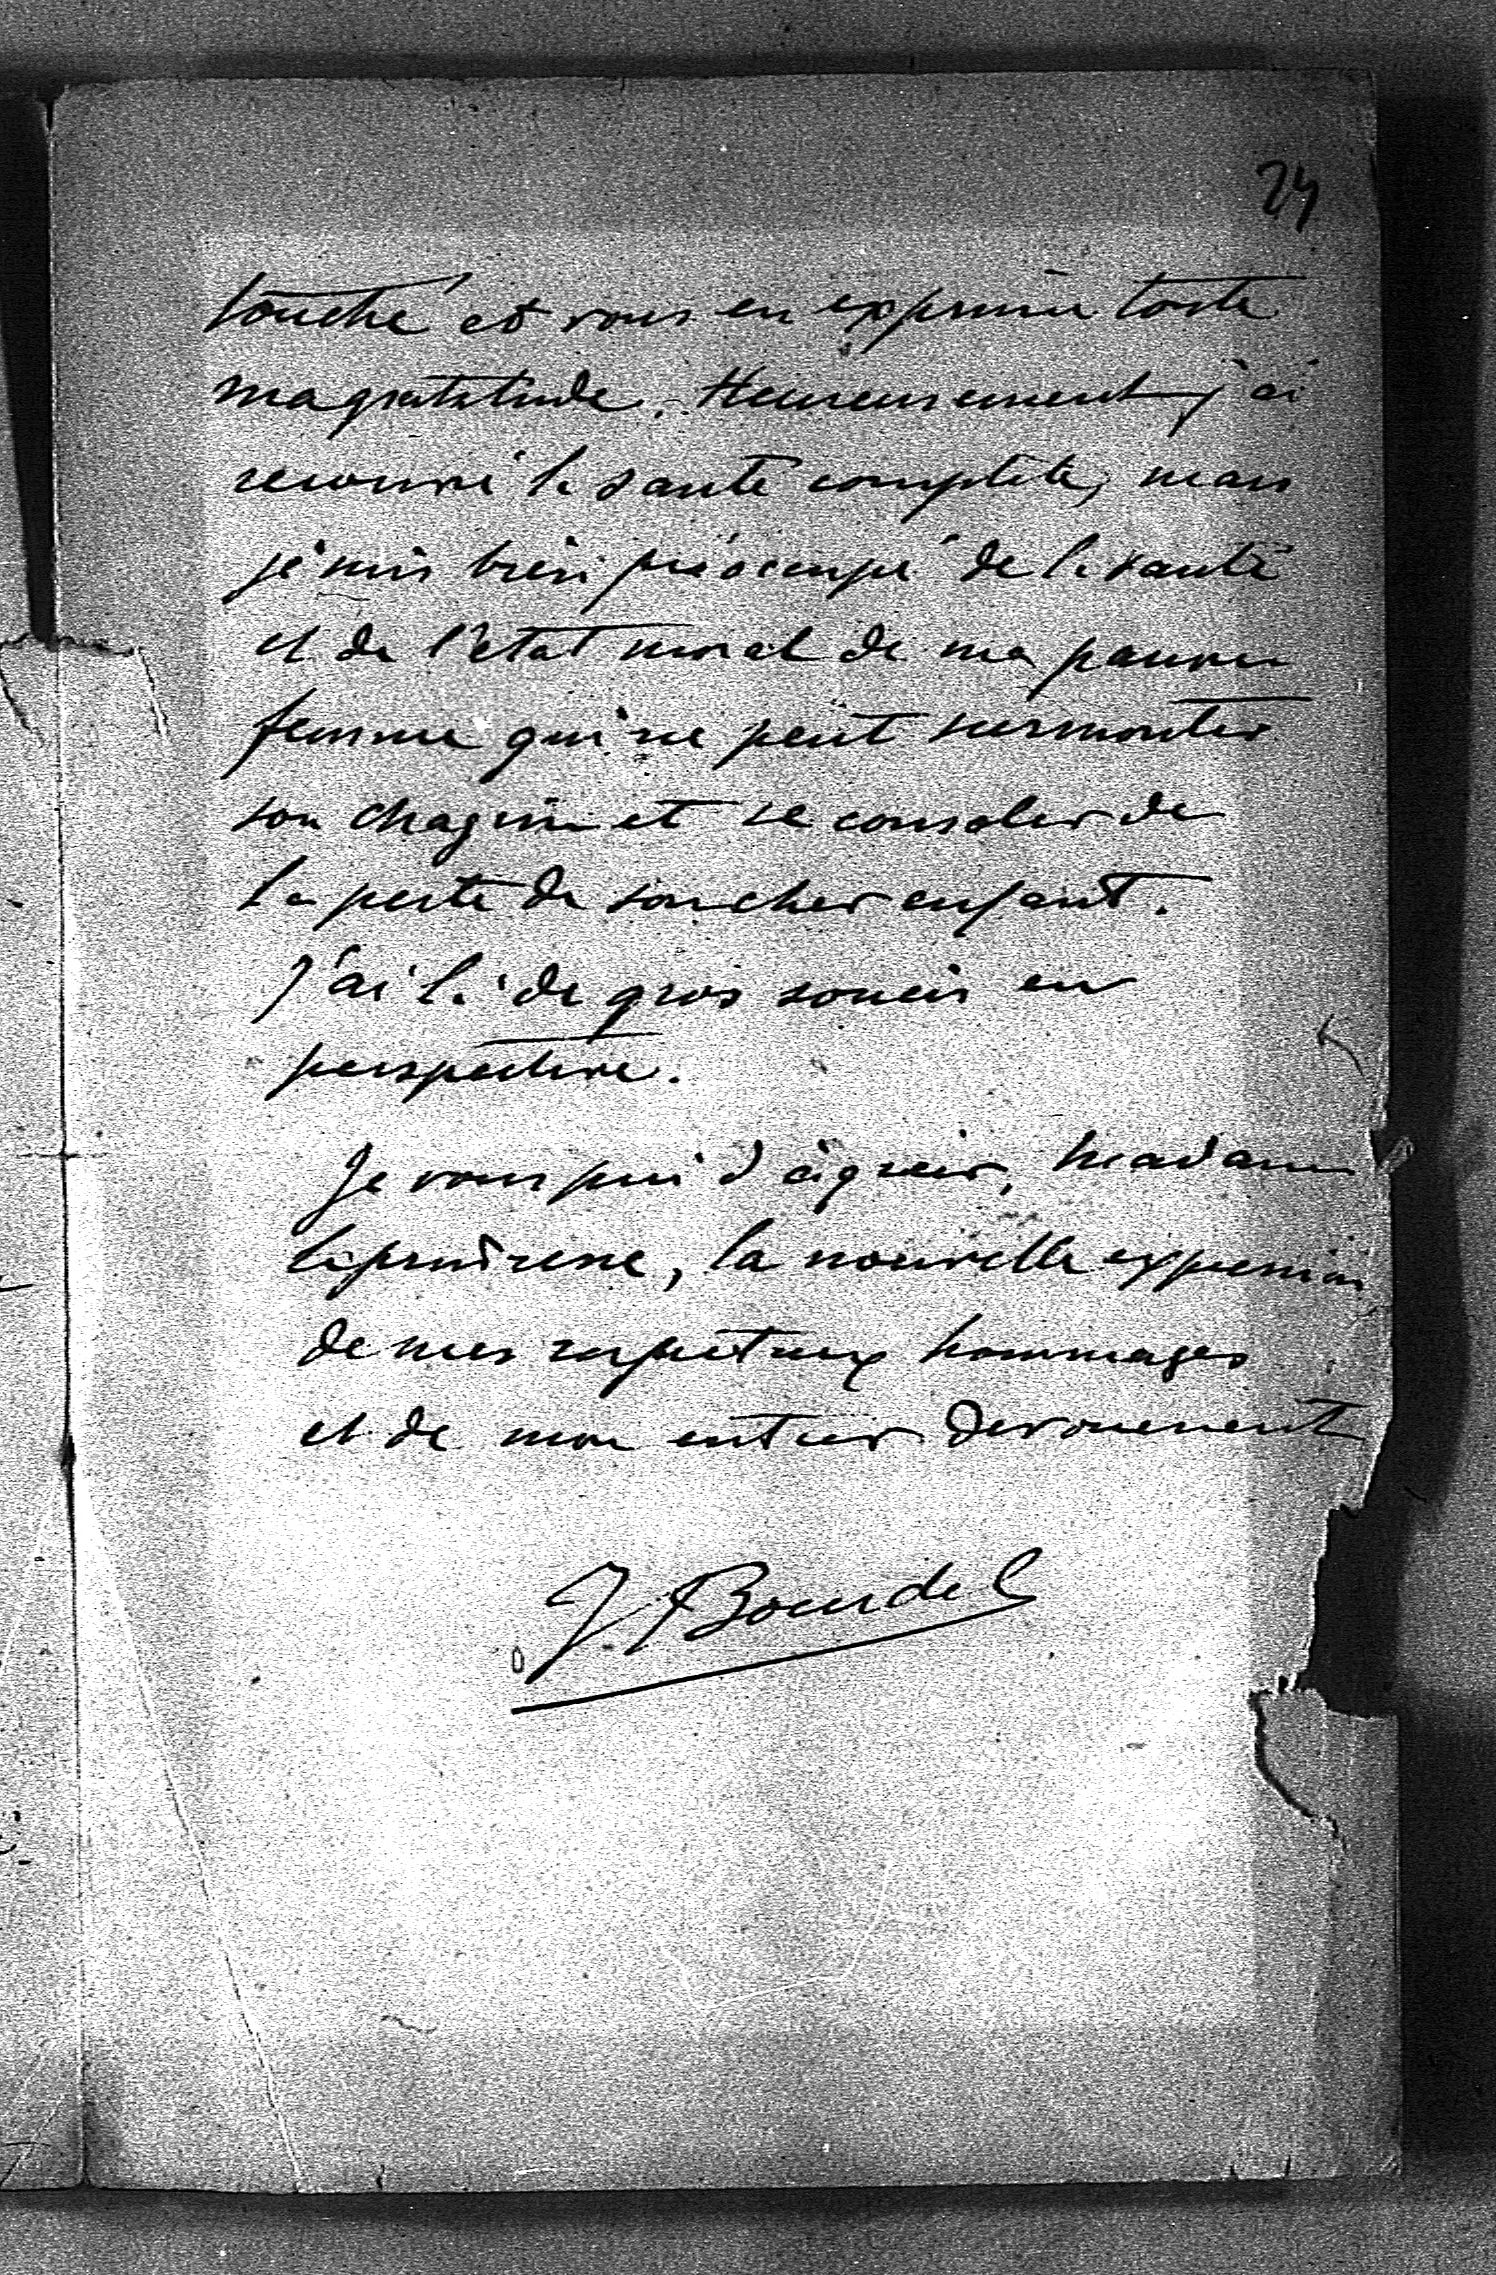 24
touché et vous en exprime toute
ma gratitude. Heureusement j'ai
recouvré la santé complète, mais
je suis bien préoccupé de la santé
et de l'état moral de ma pauvre
femme qui ne peut surmonter
son chagrin et se consoler de
la perte de son cher enfant.
J'ai là de gros soucis en
perspective.
Je vous prie d'agréer, Madame
la princesse, la nouvelle expression
de mes respectueux hommages
et de mon entier dévouement
J Bourdel